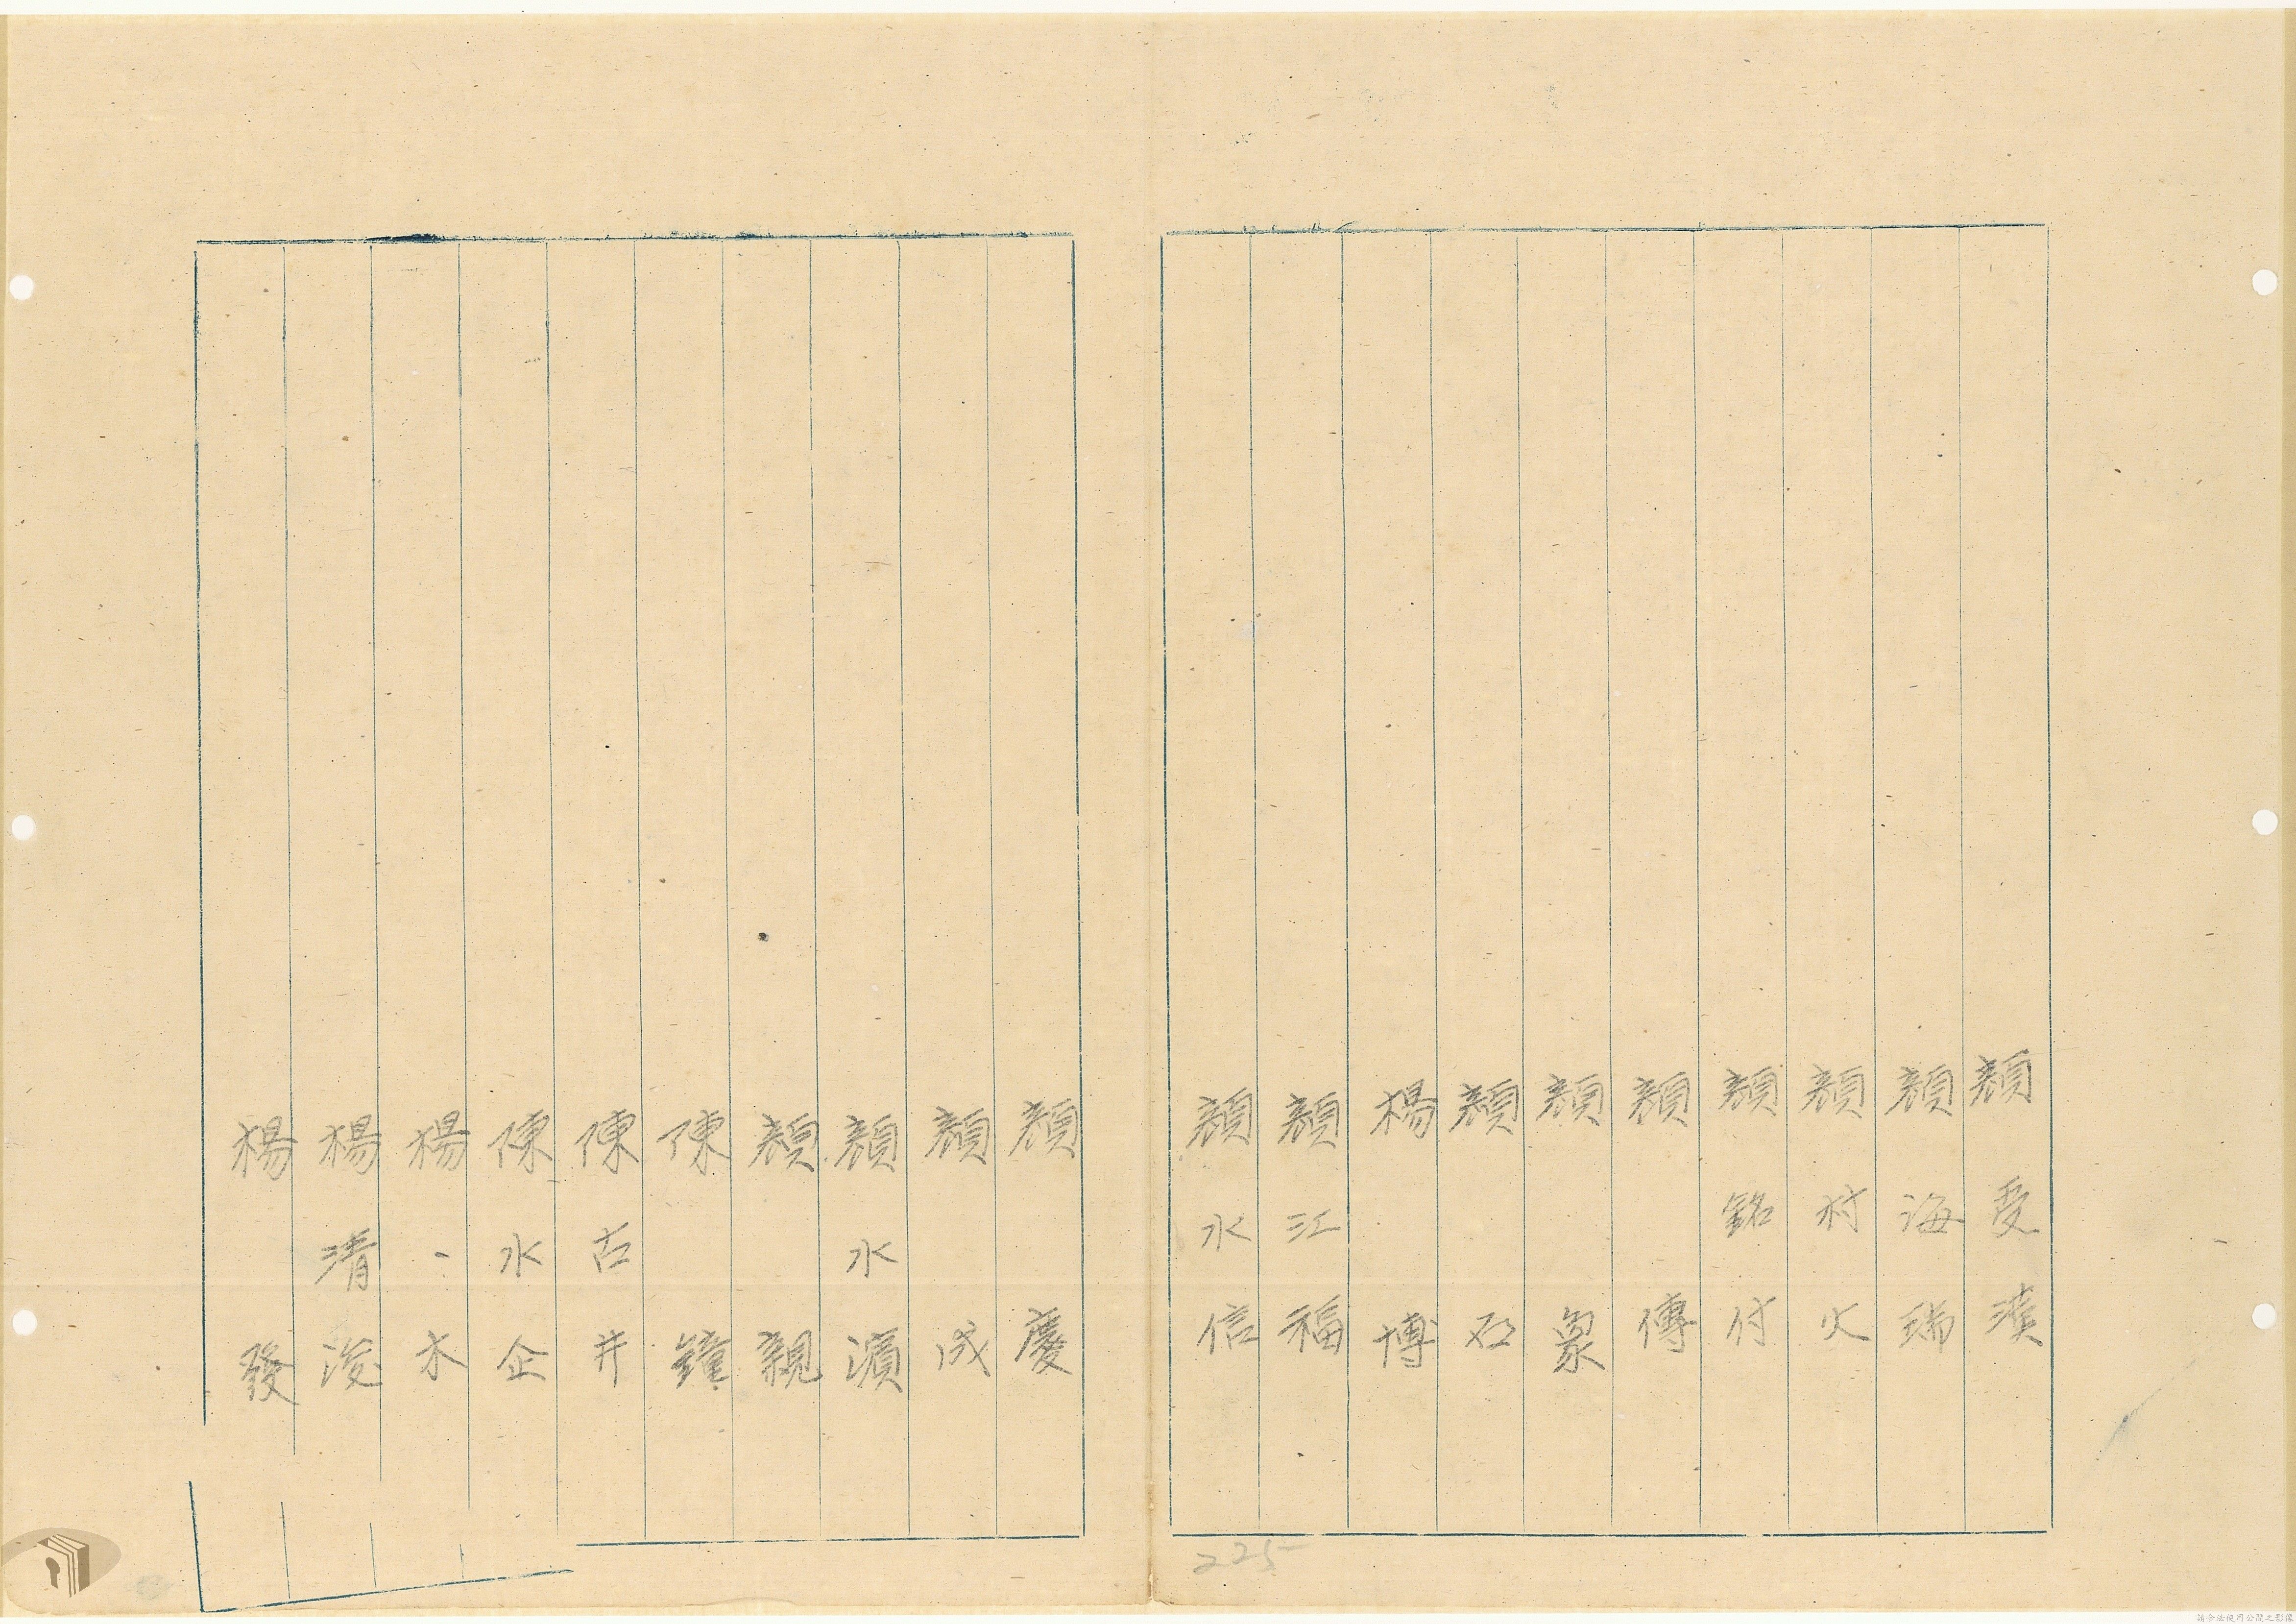 顏受漢
顏海瑞
顏村火
顏銘付
顏傳
顏象
顏石
楊博
顏江福
顏水信
顏慶
顏成
顏水濱
顏親
陳鐘
陳古井
陳水企
楊一木
楊清浚
楊發
225
請合法使用公開之影像